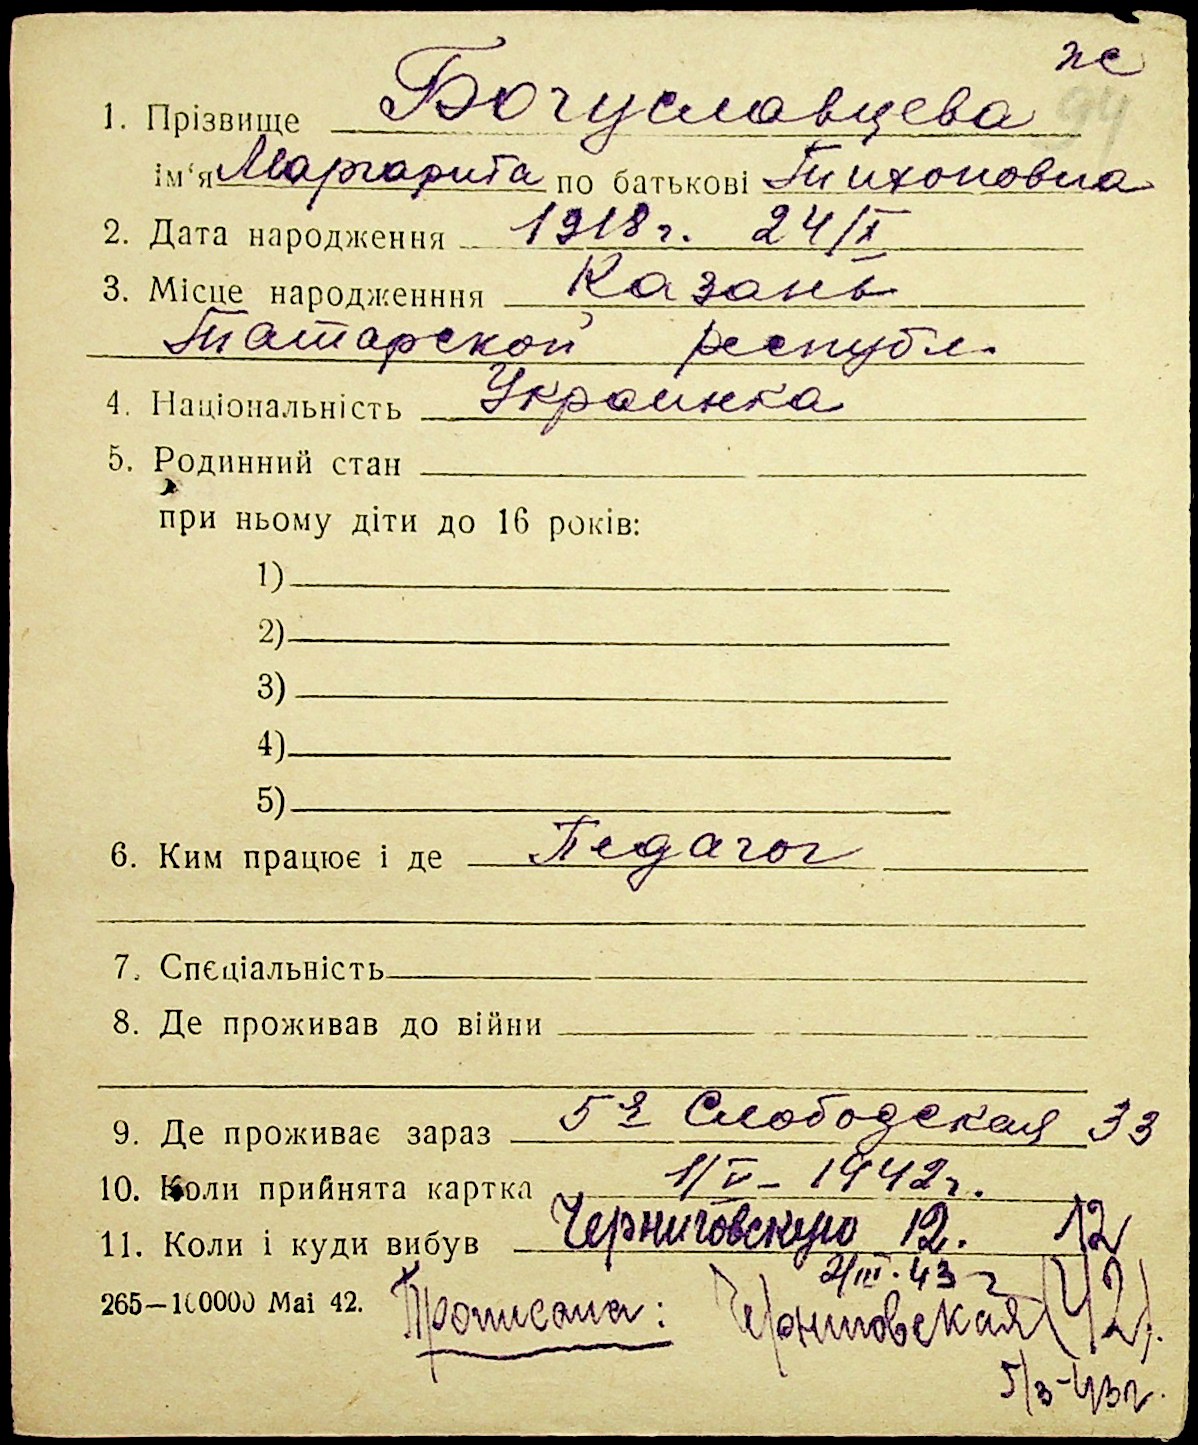 же
94
1. Прізвище Богуславцева
ім'я Маргарита по батькові Тихоновна
2. Дата народження 1918 г. 24/X
3. Місце народженння Казань
Татарской республ.
4. Національність Украинка
5. Родинний стан
при ньому діти до 16 років:
1)
2)
3)
4)
5)
6. Ким працює і де Педагог
7. Спєціальність
8. Де проживав до війни
9. Де проживає зараз 5я Слободская 33
10. Коли прийнята картка 1/V - 1942 г.
11. Коли і куди вибув Черниговскую 12. 12
2/III. 43 г
265—100000 Mai 42. Прописана: Черниговская
5/3-43г.